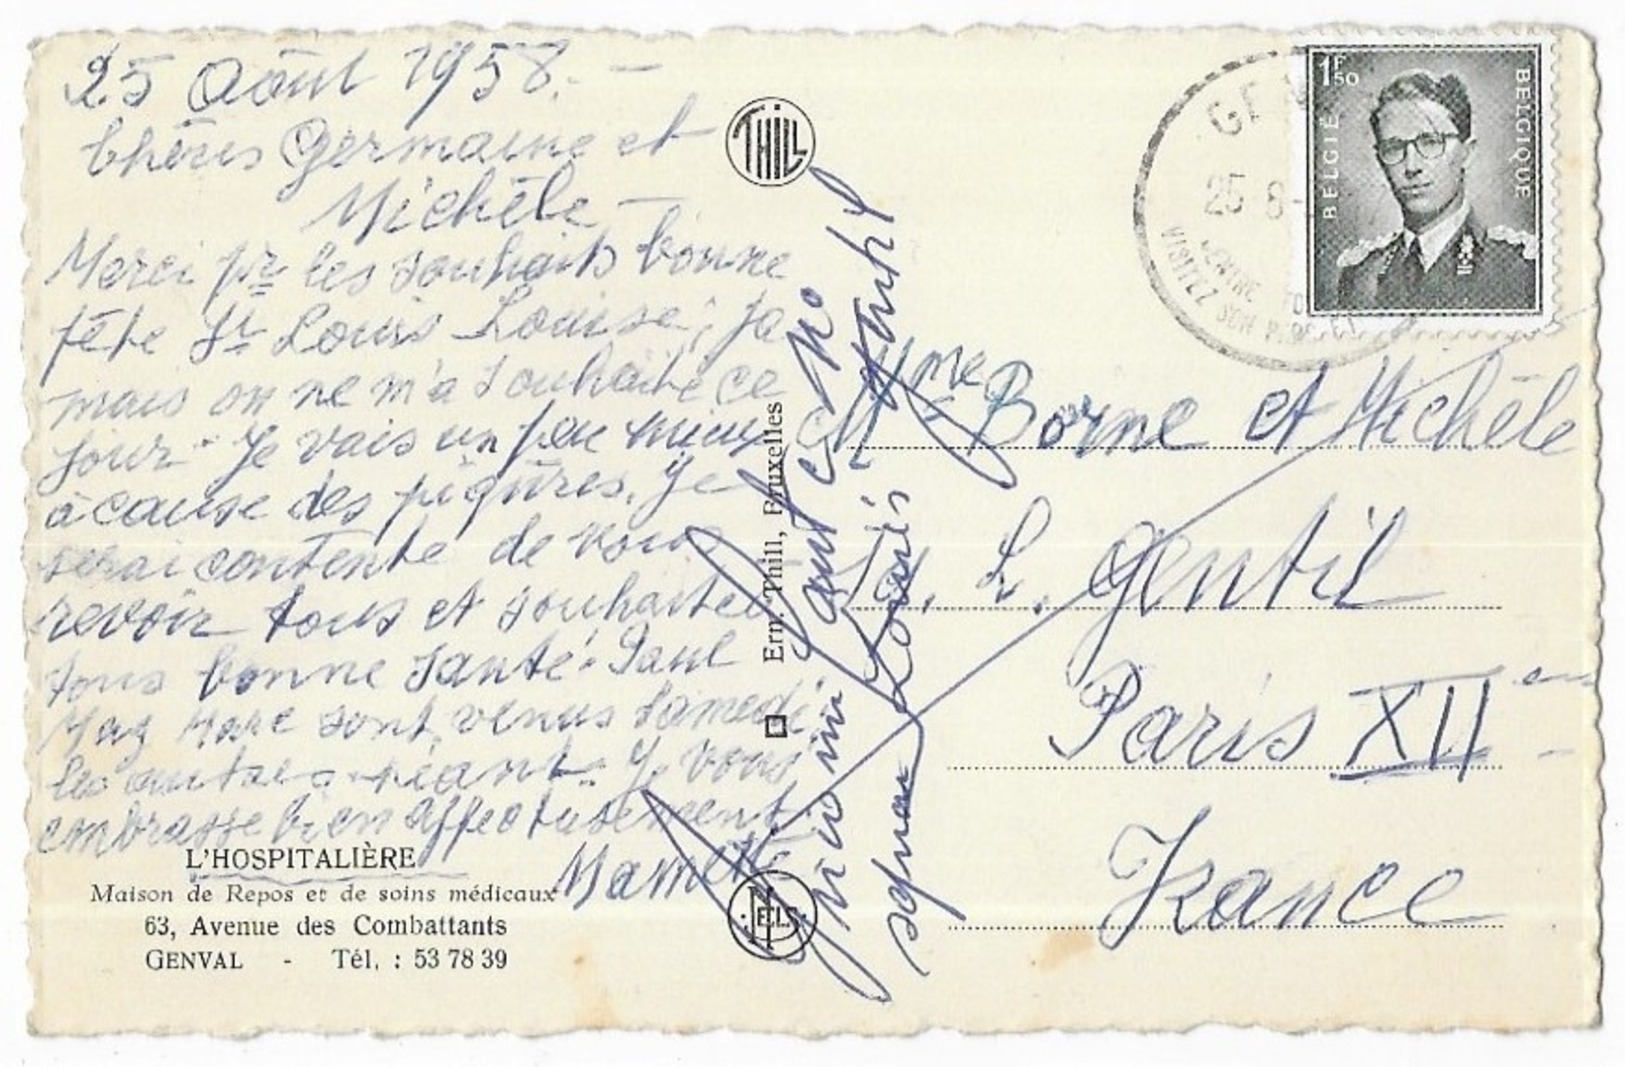 25 Août 1958. -
Chères Germaine et
Michèle -
Merci pr les souhaits bonne
fête St Louis Louise, ja
mais on ne m'a souhaité ce
jour - Je vais un peu mieux
à cause des piqûres. Je
serai contente de vous
revoir tous et souhaite
tous bonne santé. Paul
Marc sont venus samedi
les autres néant. Je vous
embrasse bien affectueusement
Mamette
L'HOSPITALIÈRE
Maison de Repos et de soins médicaux
63, Avenue des Combattants
GENVAL - Tél. : 53 78 39
THILL
Ern. Thill, Bruxelles
NELS
Louis
GEN
25-8-
CENTRE TO
VISITEZ SON PARC ET
1F50
BELGIË
BELGIQUE
Mme Borne et Michèle
14, L. Gentil
Paris XII
France